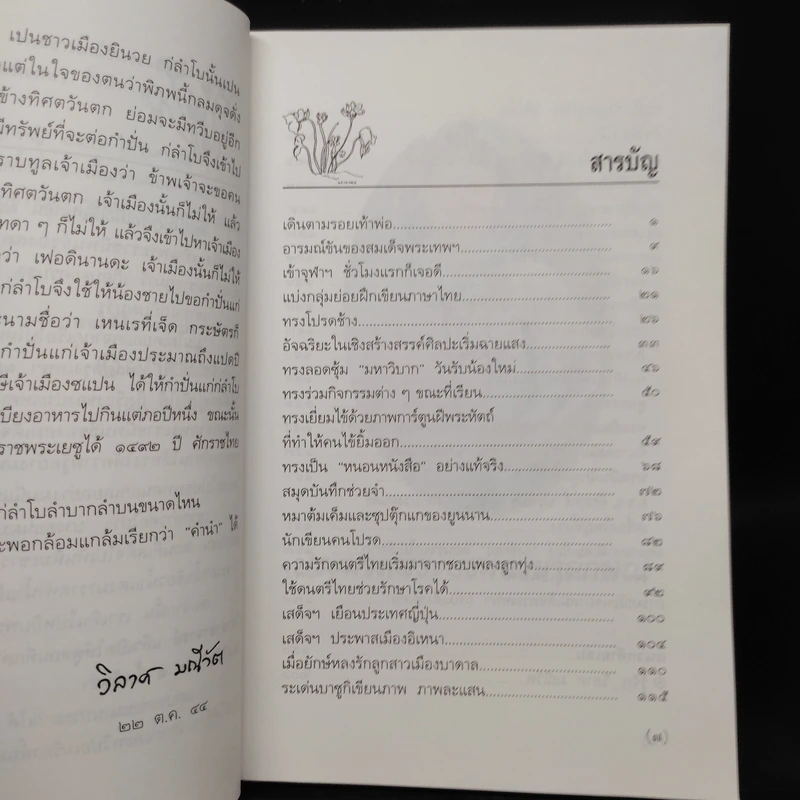 เปนชาวเมืองยินวย ก่ลำโบนั้นเปน
แต่ในใจของตนว่าพิภพนี้กลมดุจดั่ง
ข้างทิศตวันตก ย่อมจะมีทวีบอยู่อีก
มีทรัพย์ที่จะต่อกำปั่น ก่ลำโบจึงเข้าไป
ราบทูลเจ้าเมืองว่า ข้าพเจ้าจะขอคน
ทิศตวันตก เจ้าเมืองนั้นก็ไม่ให้ แล้ว
ๆ ก็ไม่ให้ แล้วจึงเข้าไปหาเจ้าเมือง
ว่า เฟอดินานดะ เจ้าเมืองนั้นก็ไม่ให้
ก่ลำโบจึงใช้ให้น้องชายไปขอกำปั่นแก่
นามชื่อว่า เหนเรที่เจ็ด กระษัตรก็
กำปั่นแก่เจ้าเมืองประมาณถึงแปดปี
เจ้าเมืองซแปน ได้ให้กำปั่นแก่ก่ลำโบ
เบียงอาหารไปกินแต่ภอปีหนึ่ง ขณะนั้น
ราชพระเยซูได้ ๑๔๙๒ ปี ศักราชไทย
ก่ลำโบลำบากลำบนขนาดไหน
พอกล้อมแกล้มเรียกว่า "คำนำ" ได้
วิลาศ มณีวัต
๒๒ ต.ค. ๔๔
สารบัญ
เดินตามรอยเท้าพ่อ ๑
อารมณ์ขันของสมเด็จพระเทพฯ ๙
เข้าจุฬาฯ ชั่วโมงแรกก็เจอดี ๑๖
แบ่งกลุ่มย่อยฝึกเขียนภาษาไทย ๒๑
ทรงโปรดช้าง ๒๖
อัจฉริยะในเชิงสร้างสรรค์ศิลปะเริ่มฉายแสง ๓๓
ทรงลอดซุ้ม "มหาวิบาก" วันรับน้องใหม่ ๔๖
ทรงร่วมกิจกรรมต่าง ๆ ขณะที่เรียน ๕๐
ทรงเยี่ยมไข้ด้วยภาพการ์ตูนฝีพระหัตถ์
ที่ทำให้คนไข้ยิ้มออก ๕๔
ทรงเป็น "หนอนหนังสือ" อย่างแท้จริง ๖๘
สมุดบันทึกช่วยจำ ๗๒
หมาต้มเค็มและซุปตุ๊กแกของยูนนาน ๗๖
นักเขียนคนโปรด ๘๒
ความรักดนตรีไทยเริ่มมาจากชอบเพลงลูกทุ่ง ๘๙
ใช้ดนตรีไทยช่วยรักษาโรคได้ ๙๒
เสด็จฯ เยือนประเทศญี่ปุ่น ๑๐๐
เสด็จฯ ประพาสเมืองอิเหนา ๑๐๔
เมื่อยักษ์หลงรักลูกสาวเมืองบาดาล ๑๑๐
ระเด่นบาซูกิเขียนภาพ ภาพละแสน ๑๑๕
(๗)